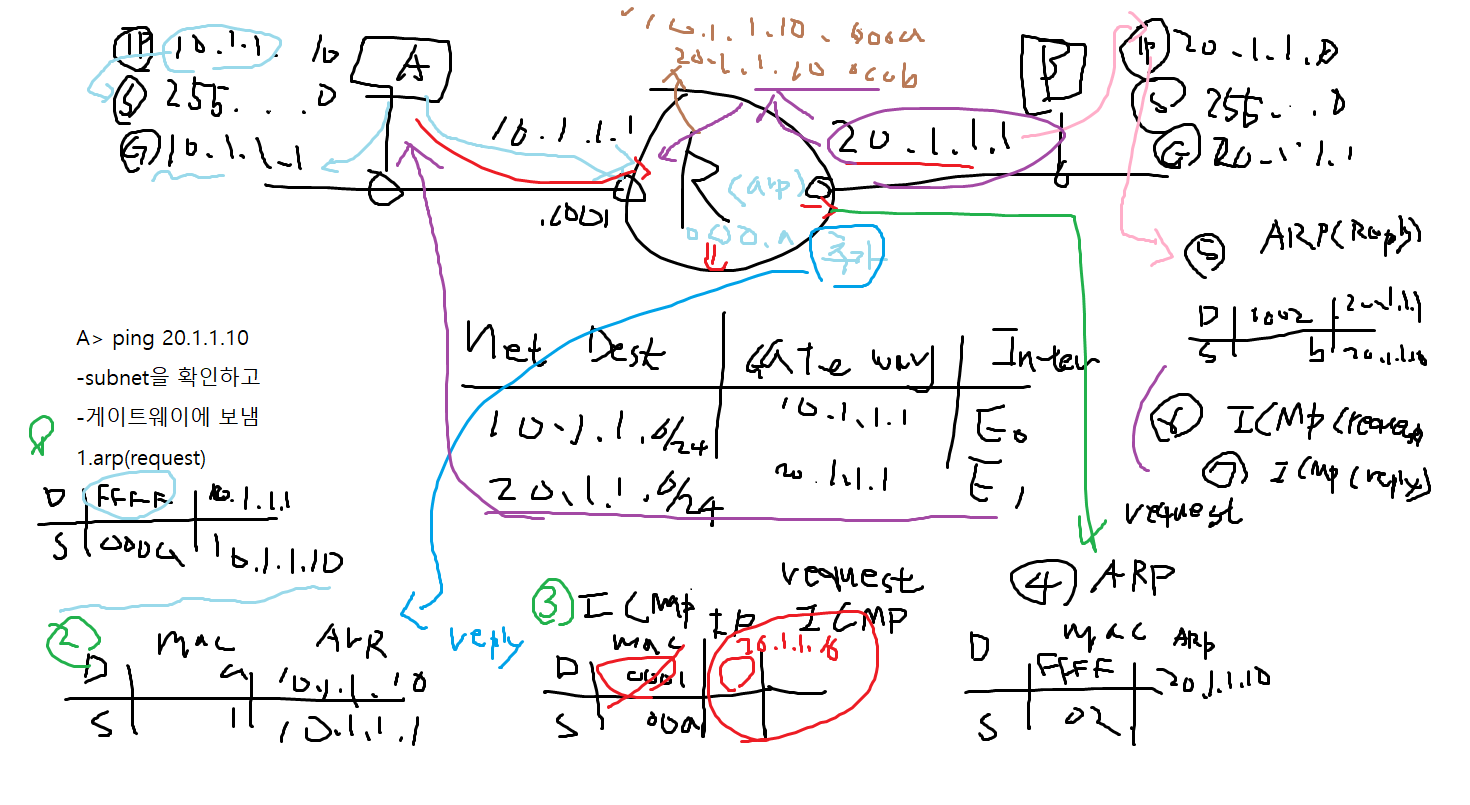 IP 10.1.1. 10
S 255 . . . 0
G 10.1.1.1
A
10.1.1.1
.1001
20.1.1.10
R
(arp)
추가
20.1.1.1
B
IP
S 255 . . . 0
G
A> ping 20.1.1.10
-subnet을 확인하고
-게이트웨이에 보냄
1.arp(request)
D FFFF 10.1.1.1
S 000a 10.1.1.10
Net Dest Gate way Inter
10.1.1.0/24 10.1.1.1 E0
20.1.1.0/24 20.1.1.1 E1
5 ARP(Reply)
D 1002 20.1.1.1
S b 20.1.1.10
6 ICMP (request
7 ICMP (reply)
2 mac ARP
D a 10.1.1.10
S 1 10.1.1.1
reply
3 ICMP IP ICMP
request
mac
D 0001
S 000a
4 ARP
request
D mac ARP
FFFF 20.1.1.10
S 02